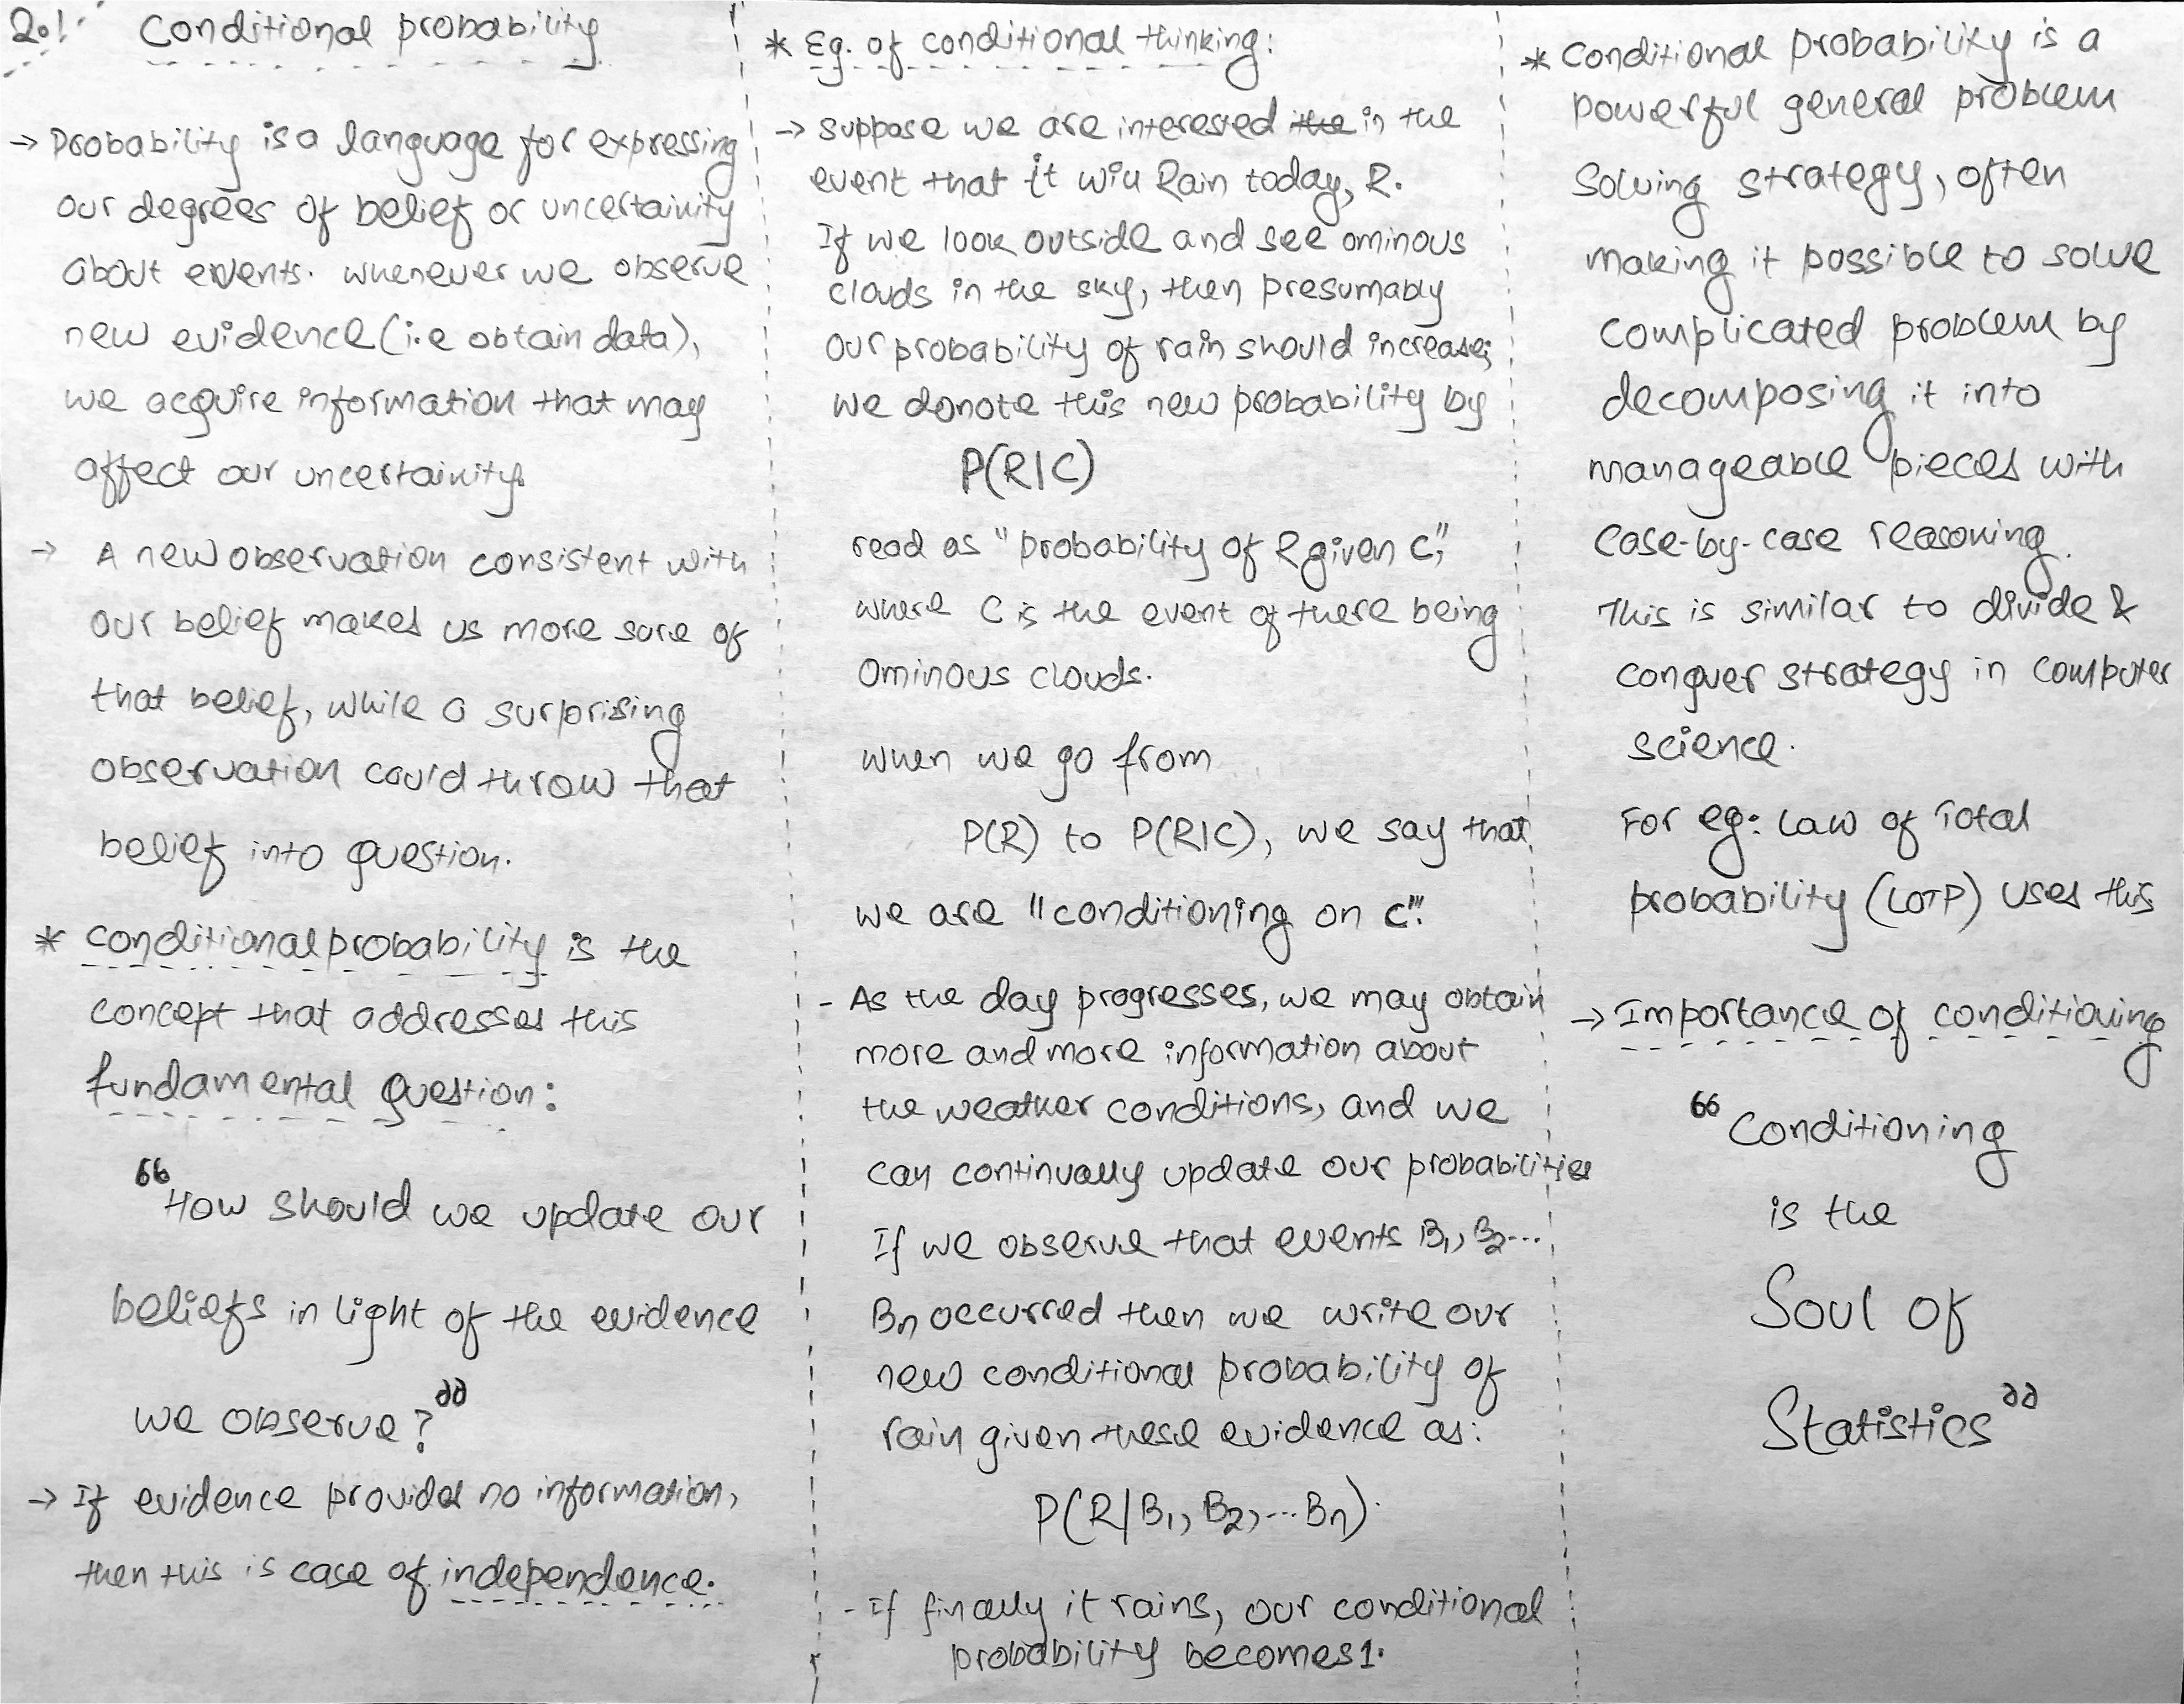 2.1 Conditional probability
→ Probability is a language for expressing
our degrees of belief or uncertainity
about events. whenever we observe
new evidence (i.e obtain data),
we acquire information that may
affect our uncertainity.
→ A new observation consistent with
our belief makes us more sure of
that belief, while a surprising
observation could throw that
belief into question.
* Conditional probability is the
concept that addresses this
fundamental question:
"How should we update our
beliefs in light of the evidence
we observe?"
→ If evidence provides no information,
then this is case of independence.
* Eg. of conditional thinking:
→ suppose we are interested the in the
event that it will Rain today, R.
If we look outside and see ominous
clouds in the sky, then presumably
our probability of rain should increase;
we donote this new probability by
P(R|C)
read as "probability of R given C",
where C is the event of there being
ominous clouds.
when we go from
P(R) to P(R|C), we say that
we are "conditioning on C".
- As the day progresses, we may obtain
more and more information about
the weather conditions, and we
can continually update our probabilities
If we observe that events B₁, B₂...
Bn occurred then we write our
new conditional probability of
rain given these evidence as:
P(R|B₁, B₂, ... Bn).
- If finally it rains, our conditional
probability becomes 1.
* Conditional probability is a
powerful general problem
solving strategy, often
making it possible to solve
complicated problem by
decomposing it into
manageable pieces with
case-by-case reasoning.
This is similar to divide &
conquer strategy in computer
science.
For eg: Law of Total
probability (LOTP) uses this
→ Importance of conditioning
"Conditioning
is the
Soul of
Statistics"